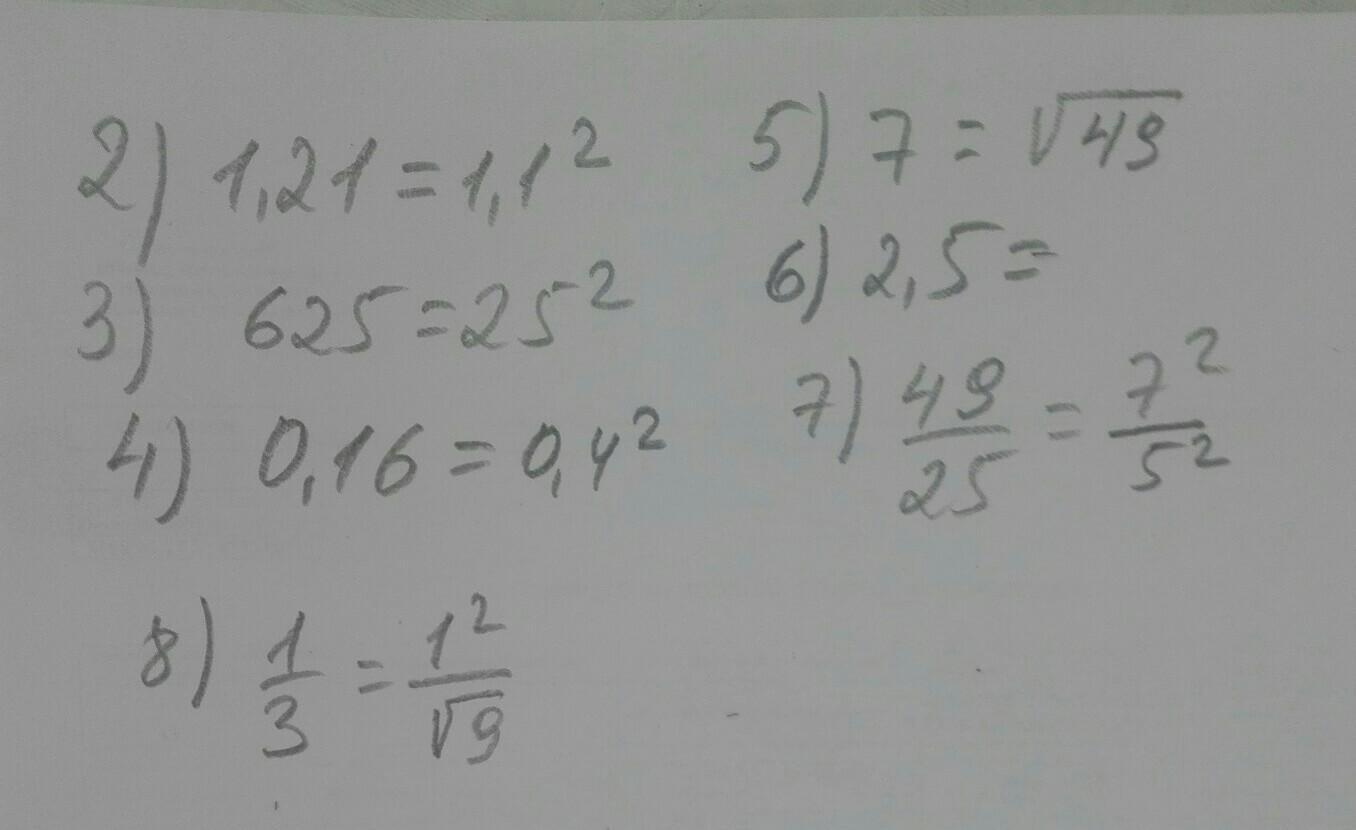 2) 1,21 = 1,1²
3) 625 = 25²
4) 0,16 = 0,4²
5) 7 = √49
6) 2,5 =
7) 49/25 = 7²/5²
8) 1/3 = 1²/√9